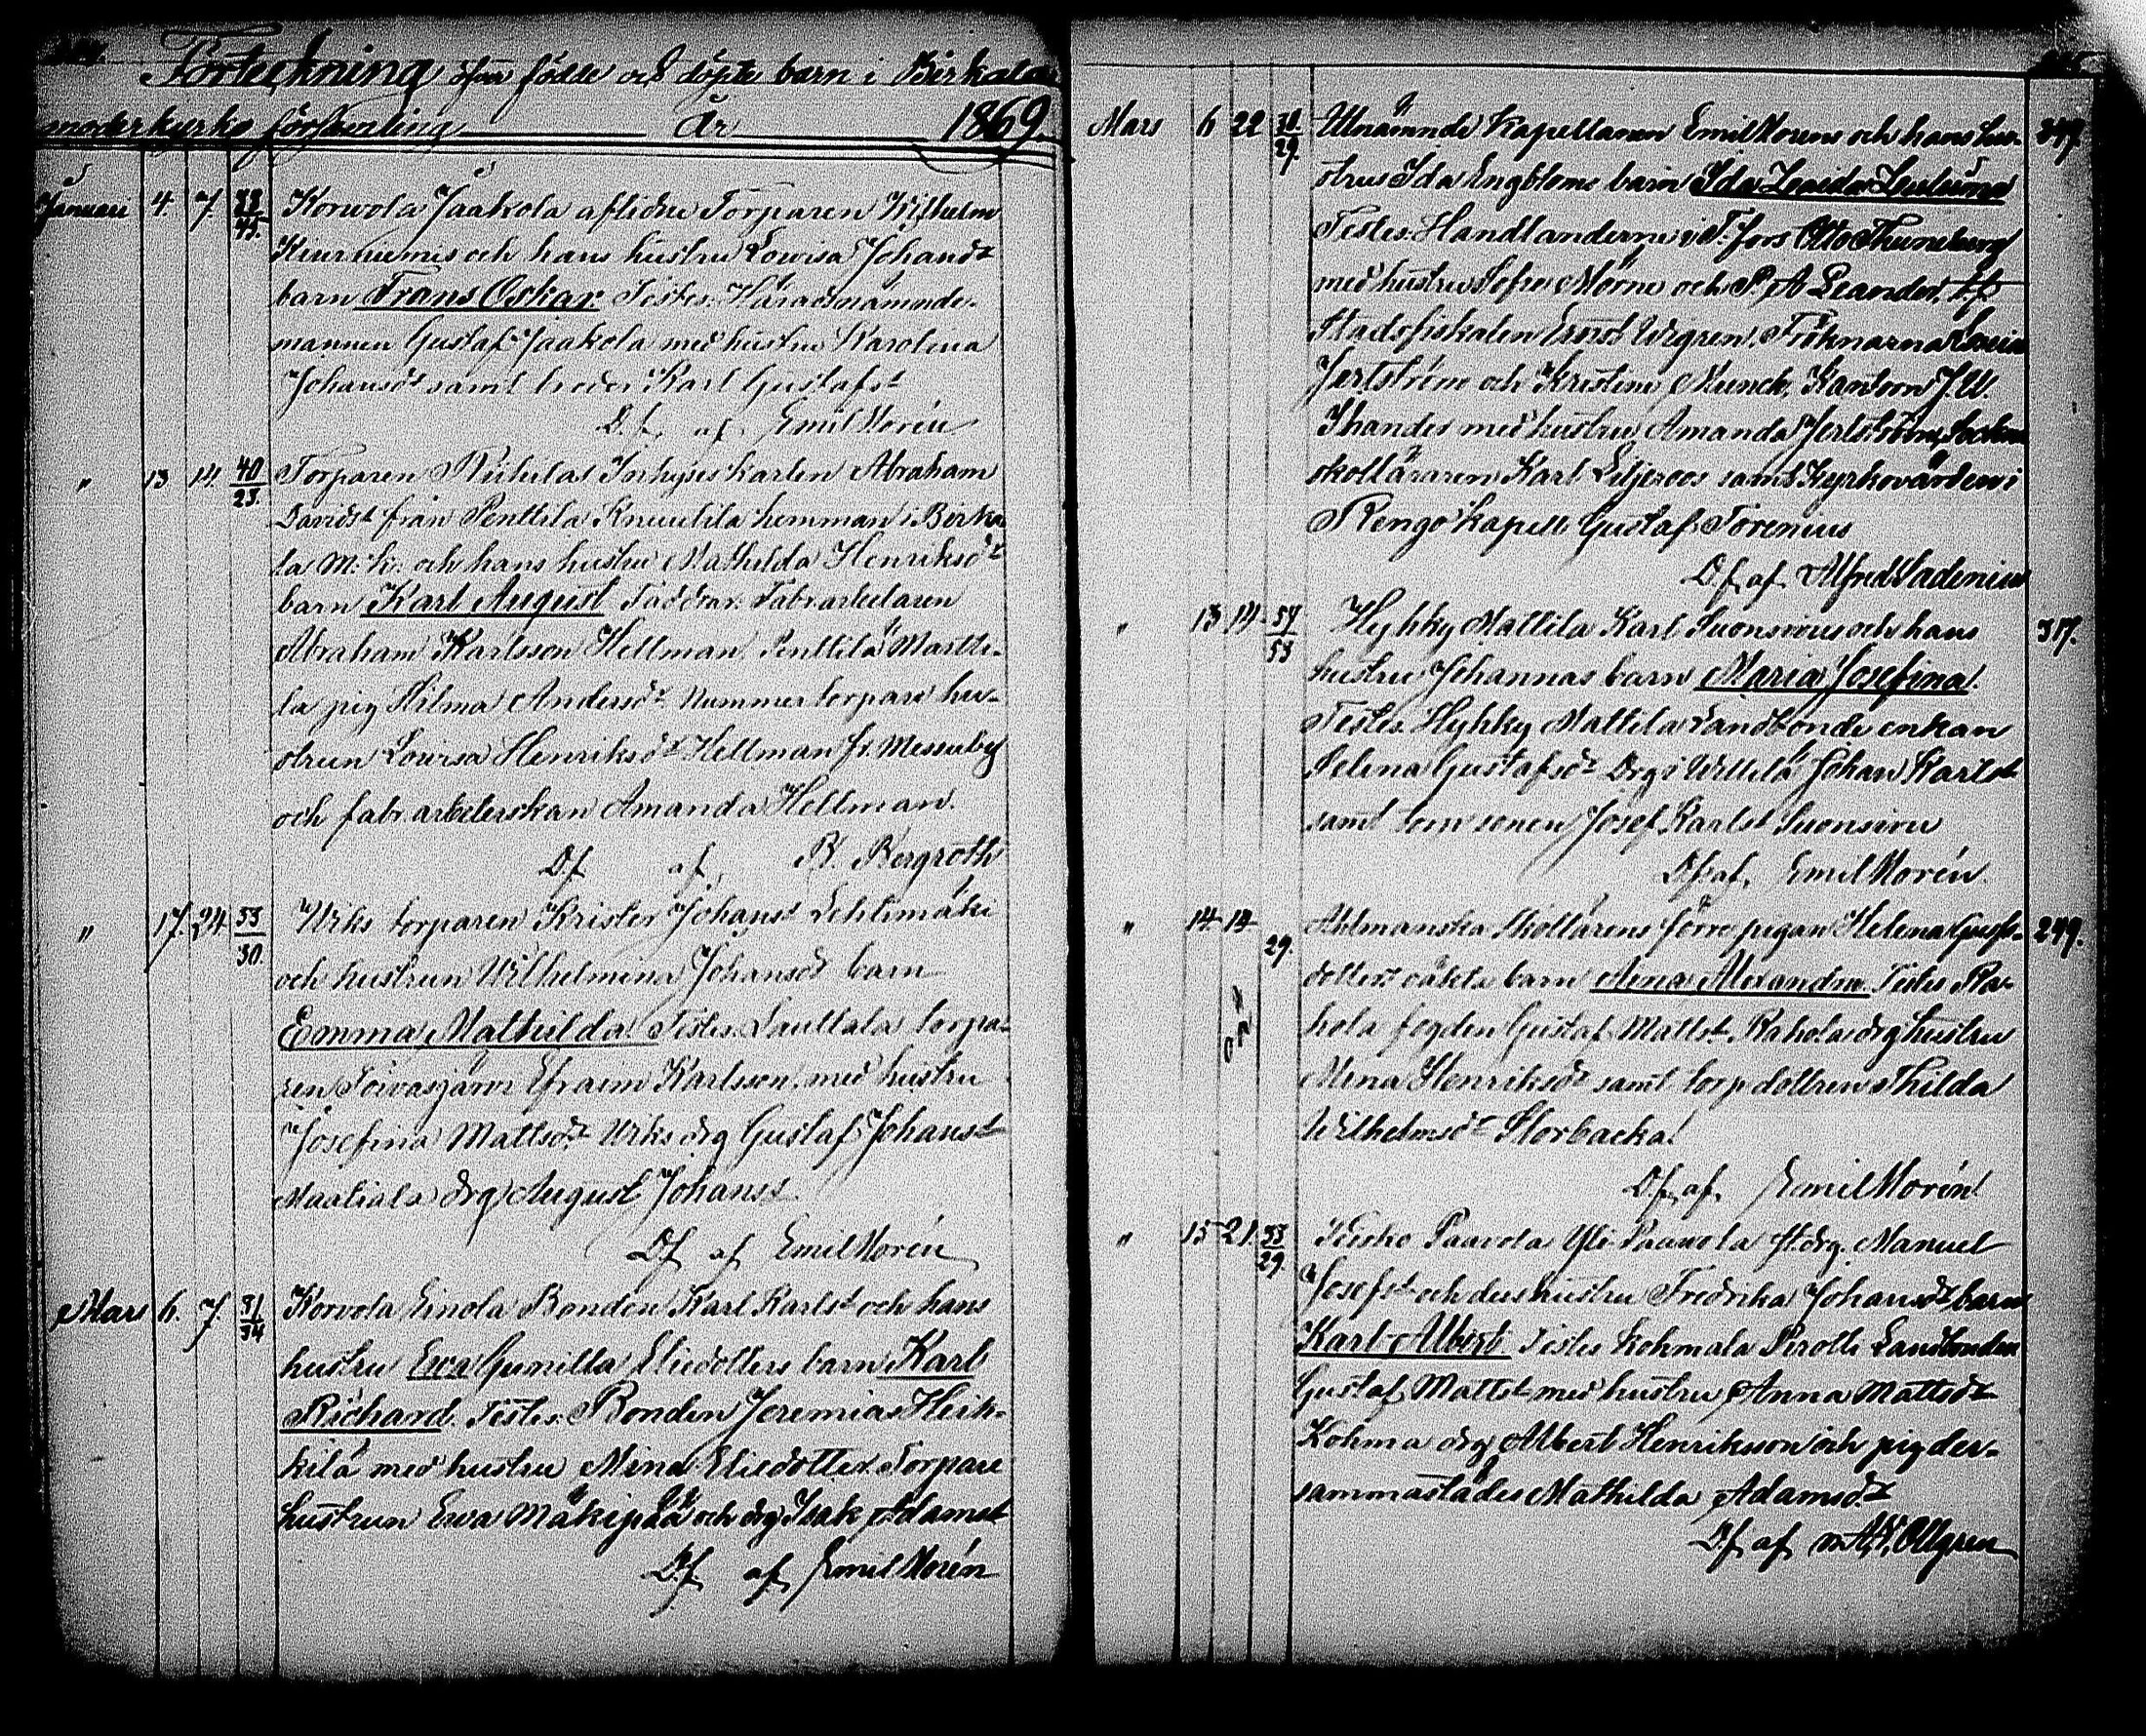 Förteckning öfver födde och döpte barn i Birkala
moderkyrko församling År 1869.
Januari 4. 7. 38/45. Korvola Jaakola aflidne Torparen Wilhelm
och hans hustru Lowisa Johansdr
barn Frans Oskar. Testes: Häradsnämnde-
mannen Gustaf Jaakola med hustru Karolina
Johansdr samt broder Karl Gustafst
D.f. af Emil Morén
" 13 14 40/23 Torparen Inhyseskarlen Abraham
Davidst från Penttilä Knuutila hemman i Birka-
la m. k. och hans hustru Mathilda Henriksdr
barn Karl August Faddrar: Fabr. arbetaren
Abraham Karlsson Hellman, Penttilä Martti-
la pig Hilma Andersdr Nummer torpare hu-
strun Lovisa Henriksdr Hellman fr. Messuby
och fabr. arbeterskan Amanda Hellman.
D.f. af B. Bergroth
" 17. 24. 33/30. torparen Krister Johanss Lehtimäki
och hustrun Wilhelmina Johansdr barn
Emma Mathilda. Testes: Lauttala torpa-
ren Toivasjärvi Efraim Karlsson med hustru
Josefina Mattsdr drg Gustaf Johanst
Maatiala drg August Johanss.
D.f. af Emil Morén
Mars 6. 7. 31/34 Korvola Einola Bonden Karl Karlst och hans
hustru Ewa Gunilla Eliedotters barn Karl
Richard. Testes: Bonden Jeremias Heik-
kilä med hustru Mina Eliedotter. Torpare
hustrun Ewa Mäkipää och drg Isak Adamst
D.f. af Emil Morén
Mars 6 22 31/29. Utnämnde Kapellanen Emil Morens och hans hu- 347.
strus Ida Engbloms barn Ida
Testes: Handlanderne i T.fors Otto Thuneberg
med hustru Sofie Mörne och P A Leander,
Stadsfiskalen Ernst Wigren, Fröknarna
Jertström och Kristine Munck, Kantorn J. W.
Thander med hustru Amanda Jertström, Sockne
skolläraren Karl Liljeroos samt Kyrkovärden i
Rengo kapell Gustaf Forenius
D.f. af Alfred Vadenius
" 13 14 34/33 Hyhky Mattila Karl Suonsivus och hans 317.
hustru Johannas barn Maria Josefina.
Testes: Hyhky Mattila Landbonde enkan
Selina Gustafsdr Drg i Willilä Johan Karlst
samt torn sonen Josef Karlst Suonsivu
D.f. af. Emil Morén.
" 14. 14. 29. Ahlmanska Skollärens förre pigan Helena Gust- 299.
dotters oäkta barn Anna Alexandra. Testes Ra-
hola fogden Gustaf Mattst. Rahola drg hustru
Mina Henriksdr samt torp dottren Thilda
Wilhelmsdr Storbacka.
D.f. af. Emil Morén.
" 15 21. 33/29. Teisko Paavola Yli-Paavola drg. Manuel
Josefst och dess hustru Fredrika Johansdr barn
Karl Albert. Testes Kohmala Pirotti Landbonden
Gustaf Mattst med hustru Anna Mattsdr
Kohma drg Albert Henriksson och pig der-
sammastädes Mathilda Adamsdr
D.f. af Ollgren